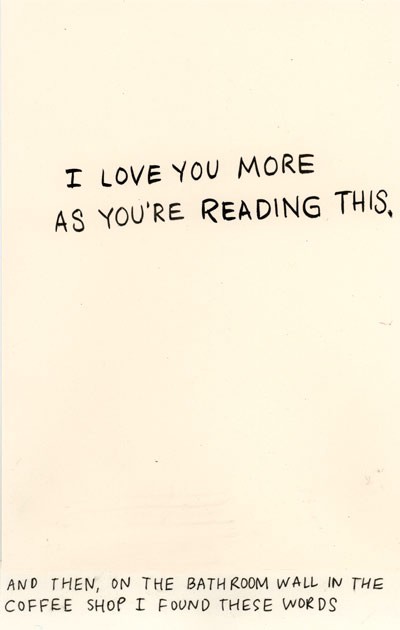 I LOVE YOU MORE
AS YOU'RE READING THIS.
AND THEN, ON THE BATHROOM WALL IN THE
COFFEE SHOP I FOUND THESE WORDS